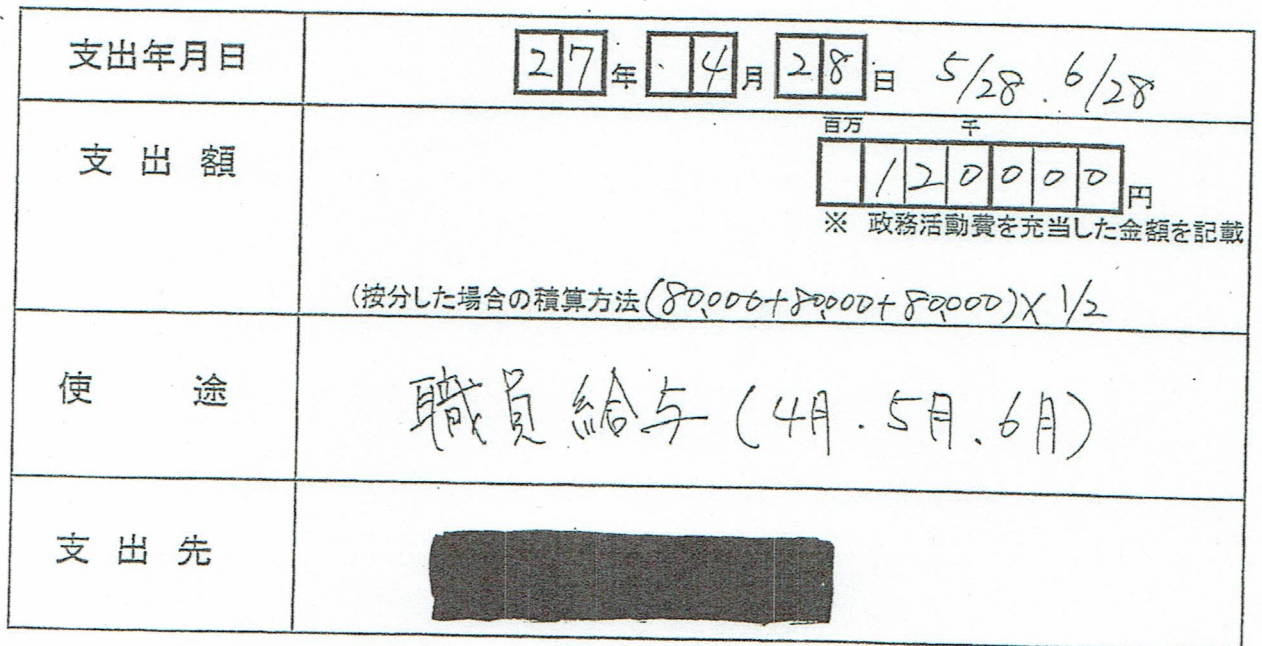 支出年月日 27年 4月28日 5/28. 6/28
百万 千
支出額 120000円
※ 政務活動費を充当した金額を記載
(按分した場合の積算方法(80,000+80,000+80,000)×1/2
使途 職員給与(4月.5月.6月)
支出先